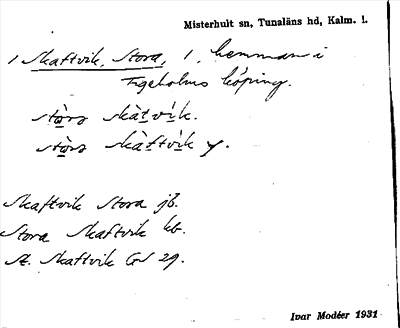 Misterhult sn, Tunaläns hd, Kalm. l.
1 Skaftvik, Stora, 1, hemman i
Figeholms köping.
stòrɑ skàtvík.
stòrɑ skàftvík y.
Skaftvik Stora jb.
Stora Skaftvik kb.
St. Skaftvik GS 29.
Ivar Modéer 1931